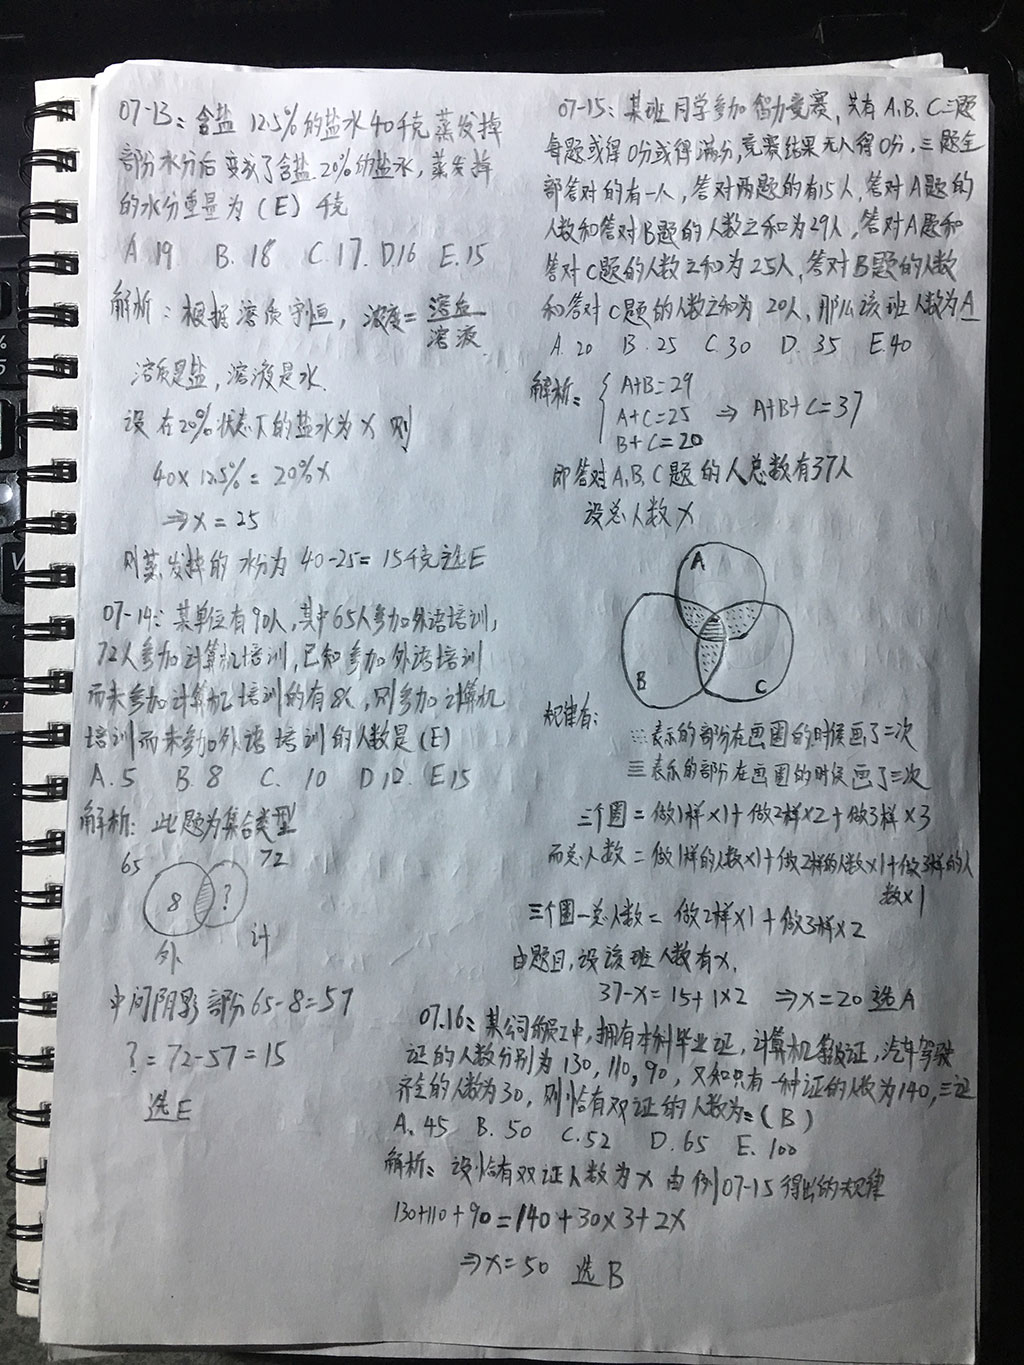 07-13：含盐 12.5%的盐水40千克蒸发掉
部份水分后变成了含盐20%的盐水，蒸发掉
的水分重量为（E）千克
A.19 B.18 C.17 D.16 E.15
解析：根据溶质守恒，浓度=溶质/溶液
溶质是盐，溶液是水.
设在20%状态下的盐水为X 则
40×12.5%=20%X
⇒X=25
则蒸发掉的水份为 40-25=15千克选E
07-14：某单位有90人，其中65人参加外语培训，
72人参加计算机培训，已知参加外语培训
而未参加计算机培训的有8人，则参加计算机
培训而未参加外语培训的人数是（E）
A.5 B.8 C.10 D12. E15
解析：此题为集合类型
65 72
8 ?
外 计
中间阴影部分65-8=57
?=72-57=15
选E
07-15：某班同学参加智力竞赛，共有A.B.C三题
每题或得0分或得满分，竞赛结果无人得0分，三题全
部答对的有一人，答对两题的有15人，答对A题的
人数和答对B题的人数之和为29人，答对A题和
答对C题的人数之和为25人，答对B题的人数
和答对C题的人数之和为 20人，那么该班人数为A
A.20 B.25 C.30 D.35 E.40
解析：
A+B=29
A+C=25 ⇒ A+B+C=37
B+C=20
即答对A，B，C题的人总数有37人
设总人数X
A
B C
规律有：
表示的部分在画圈的时候画了二次
表示的部分在画圈的时候画了三次
三个圈=做1样×1+做2样×2+做3样×3
而总人数=做1样的人数×1+做2样的人数×1+做3样的人
数×1
三个圈-总人数=做2样×1+做3样×2
由题目，设该班人数有X.
37-X=15+1×2 ⇒X=20 选A
07.16：某公司的员工中，拥有本科毕业证，计算机等级证，汽车驾驶
证的人数分别为130，110，90，又知只有一种证的人数为140，三证
齐全的人数为30，则恰有双证的人数为：（B）
A.45 B.50 C.52 D.65 E.100
解析：设恰有双证人数为X由例07-15得出的规律
130+110+90=140+30×3+2X
⇒X=50 选B